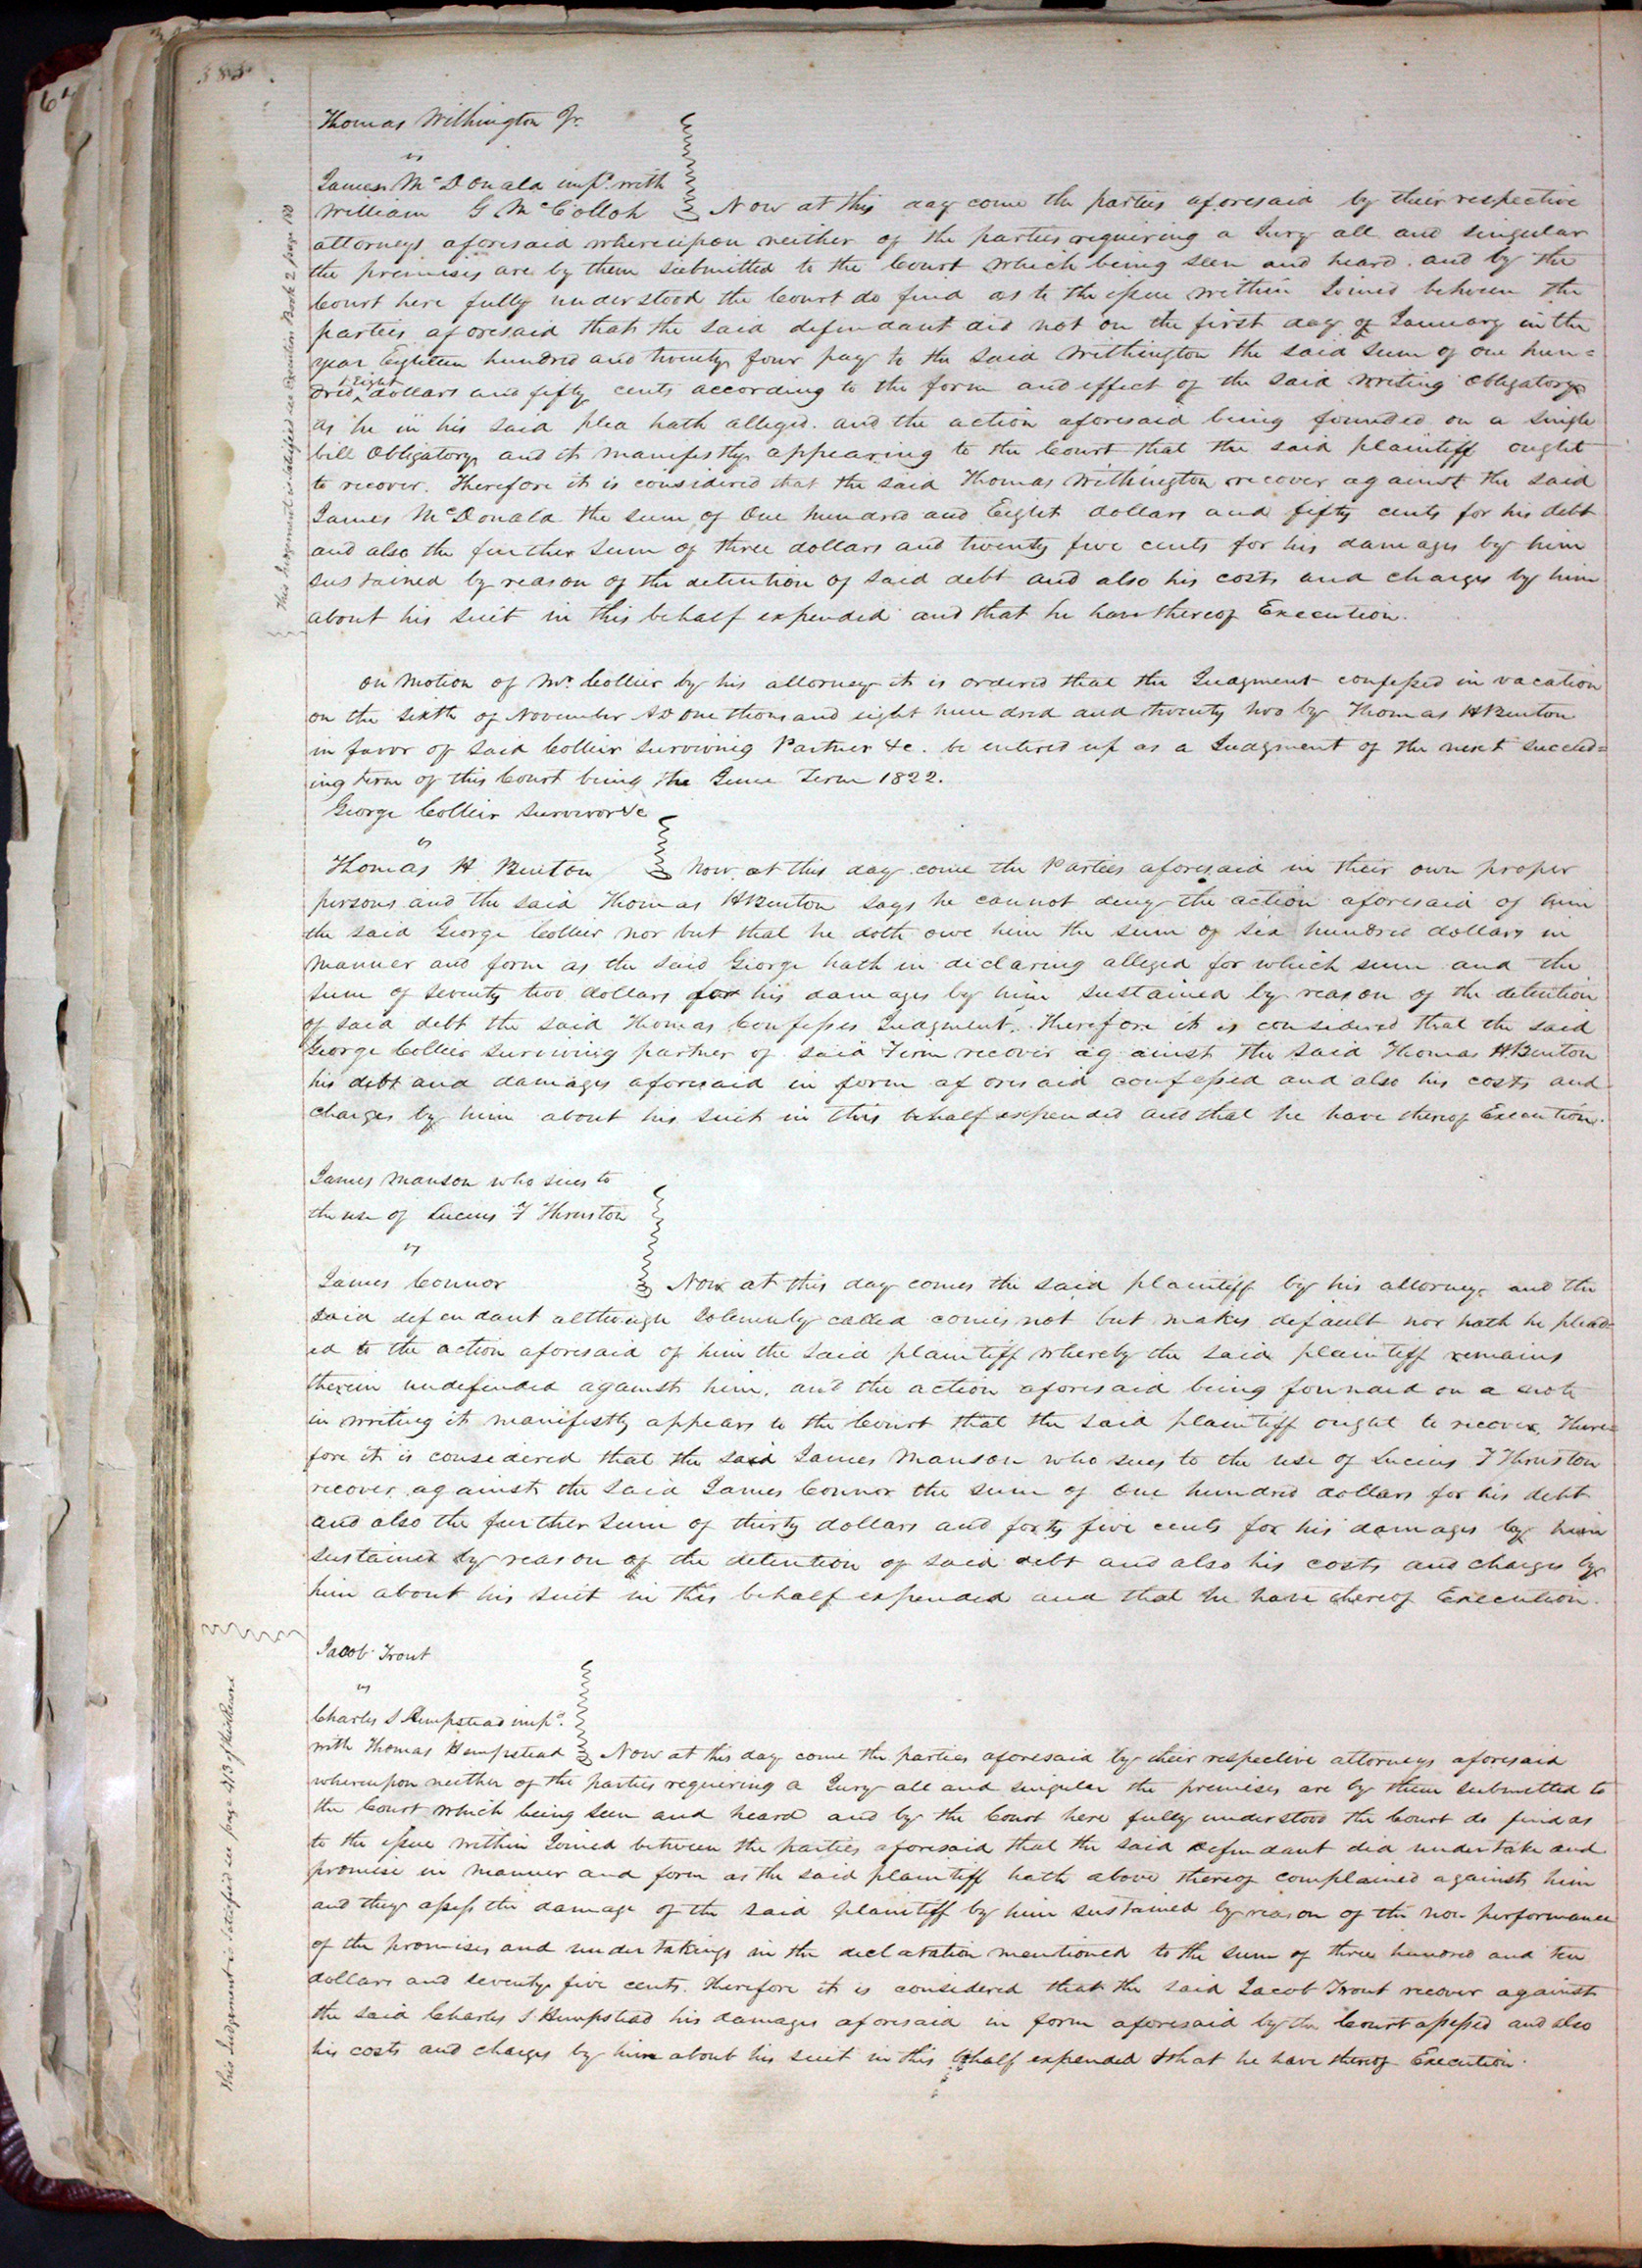 388
Thomas Withington Jr.
vs
James McDonald imp.d with
William G McColloh } Now at this day come the parties aforesaid by their respective
attorneys aforesaid whereupon neither of the parties requiring a Jury all and singular
the premises are by them submitted to the Court which being seen and heard. and by the
Court here fully understood the Court do find as to the issue within Joined between the
parties aforesaid that the said defendant did not on the first day of January in the
year Eighteen hundred and twenty four pay to the said Withington the said sum of one hun=
dred & eight dollars and fifty cents according to the form and effect of the said writing obligatory
as he in his said plea hath alleged. and the action aforesaid being founded on a single
bill Obligatory and it manifestly appearing to the Court that the said plaintiff ought
to recover. Therefore it is considered that the said Thomas Withington recover against the said
James McDonald the sum of One hundred and Eight dollars and fifty cents for his debt
and also the further sum of three dollars and twenty five cents for his damages by him
sustained by reason of the detention of said debt and also his costs and charges by him
about his suit in this behalf expended and that he have thereof Execution.
This Judgment is satisfied see Execution Book 2 page 180
On Motion of Mr. Collier by his attorney it is ordered that the Judgment confessed in vacation
on the sixth of November AD one thousand eight hundred and twenty two by Thomas H Benton
in favor of said Collier Surviving Partner &c. be entered up as a Judgment of the next succeed=
ing term of this Court being the June Term 1822.
George Collier Survivor &c
vs
Thomas H Benton } Now at this day come the Parties aforesaid in their own proper
persons and the said Thomas H Benton says he cannot deny the action aforesaid of him
the said George Collier nor but that he doth owe him the sum of six hundred dollars in
manner and form as the said George hath in declaring alleged for which sum and the
sum of seventy two dollars for his damages by him sustained by reason of the detention
of said debt the said Thomas Confesses Judgment. Therefore it is considered that the said
George Collier surviving partner of said Firm recover against the said Thomas H Benton
his debt and damages aforesaid in form aforesaid confessed and also his costs and
charges by him about his suit in this behalf expended and that he have thereof Execution.
James Manson who sues to
the use of Lucius F Thruston
vs
James Connor } Now at this day comes the said plaintiff by his attorney and the
said defendant although Solemnly called comes not but makes default nor hath he plead=
ed to the action aforesaid of him the said plaintiff whereby the said plaintiff remains
therein undefended against him, and the action aforesaid being founded on a note
in writing it manifestly appears to the Court that the said plaintiff ought to recover. There=
fore it is considered that the said James Manson who sues to the use of Lucius F Thruston
recover against the said James Connor the sum of One hundred dollars for his debt
and also the further sum of thirty dollars and forty five cents for his damages by him
sustained by reason of the detention of said debt and also his costs and charges by
him about his suit in this behalf expended and that he have thereof Execution.
Jacob Trout
vs
Charles S Hempstead imp.d
with Thomas Hempstead } Now at this day come the parties aforesaid by their respective attorneys aforesaid
whereupon neither of the parties requiring a Jury all and singular the premises are by them submitted to
the Court which being seen and heard and by the Court here fully understood the Court do find as
to the issue within Joined between the parties aforesaid that the said defendant did undertake and
promise in manner and form as the said plaintiff hath above thereof complained against him
and they assess the damage of the said plaintiff by him sustained by reason of the non performance
of the promises and undertakings in the declaration mentioned to the sum of three hundred and ten
dollars and seventy five cents. Therefore it is considered that the said Jacob Trout recover against
the said Charles S Hempstead his damages aforesaid in form aforesaid by the Court assessed and also
his costs and charges by him about his suit in this behalf expended & that he have thereof Execution.
This Judgement is satisfied see page 413 of this Record